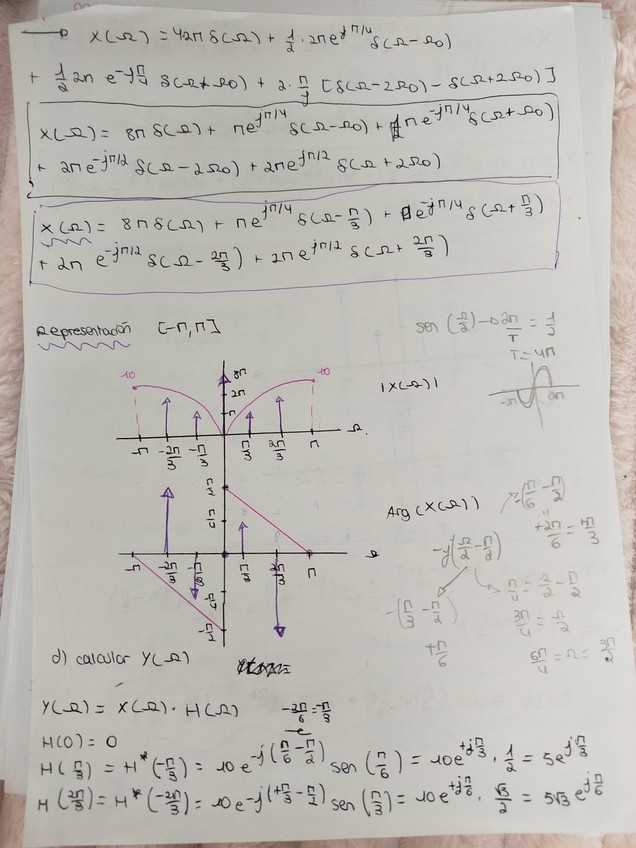 → X(Ω) = 4·2π δ(Ω) + 1/2 · 2π e^{jπ/4} δ(Ω-Ω0)
+ 1/2 2π e^{-jπ/4} δ(Ω+Ω0) + 2·π/j [δ(Ω-2Ω0) - δ(Ω+2Ω0)]
X(Ω) = 8π δ(Ω) + π e^{jπ/4} δ(Ω-Ω0) + π e^{-jπ/4} δ(Ω+Ω0)
+ 2π e^{-jπ/2} δ(Ω-2Ω0) + 2π e^{jπ/2} δ(Ω+2Ω0)
X(Ω) = 8π δ(Ω) + π e^{jπ/4} δ(Ω-π/3) + e^{-jπ/4} δ(Ω+π/3)
+ 2π e^{-jπ/2} δ(Ω-2π/3) + 2π e^{jπ/2} δ(Ω+2π/3)
Representación [-π,π]
sen(Ω/2) → 2π/T = 1/2
T = 4π
10 8π 10
2π
π
|X(Ω)|
-2π 2π
-π -2π/3 -π/3 π/3 2π/3 π Ω
π/2
Arg(X(Ω))
(π/6 - π/2)
+2π/6 = π/3
-j(Ω/2 - π/2)
-π -2π/3 -π/3 π/3 2π/3 π Ω
-π/2
-(π/3 - π/2)
+π/6
π/4 = Ω/2 - π/2
3π/4 = Ω/2
6π/4 = Ω = 3π/2
d) calcular Y(Ω)
Y(Ω) = X(Ω) · H(Ω) -2π/6 = -π/3
H(0) = 0
H(π/3) = H*(-π/3) = 10e^{-j(π/6 - π/2)} sen(π/6) = 10e^{+jπ/3} · 1/2 = 5e^{jπ/3}
H(2π/3) = H*(-2π/3) = 10e^{-j(+π/3 - π/2)} sen(π/3) = 10e^{+jπ/6} · √3/2 = 5√3 e^{jπ/6}